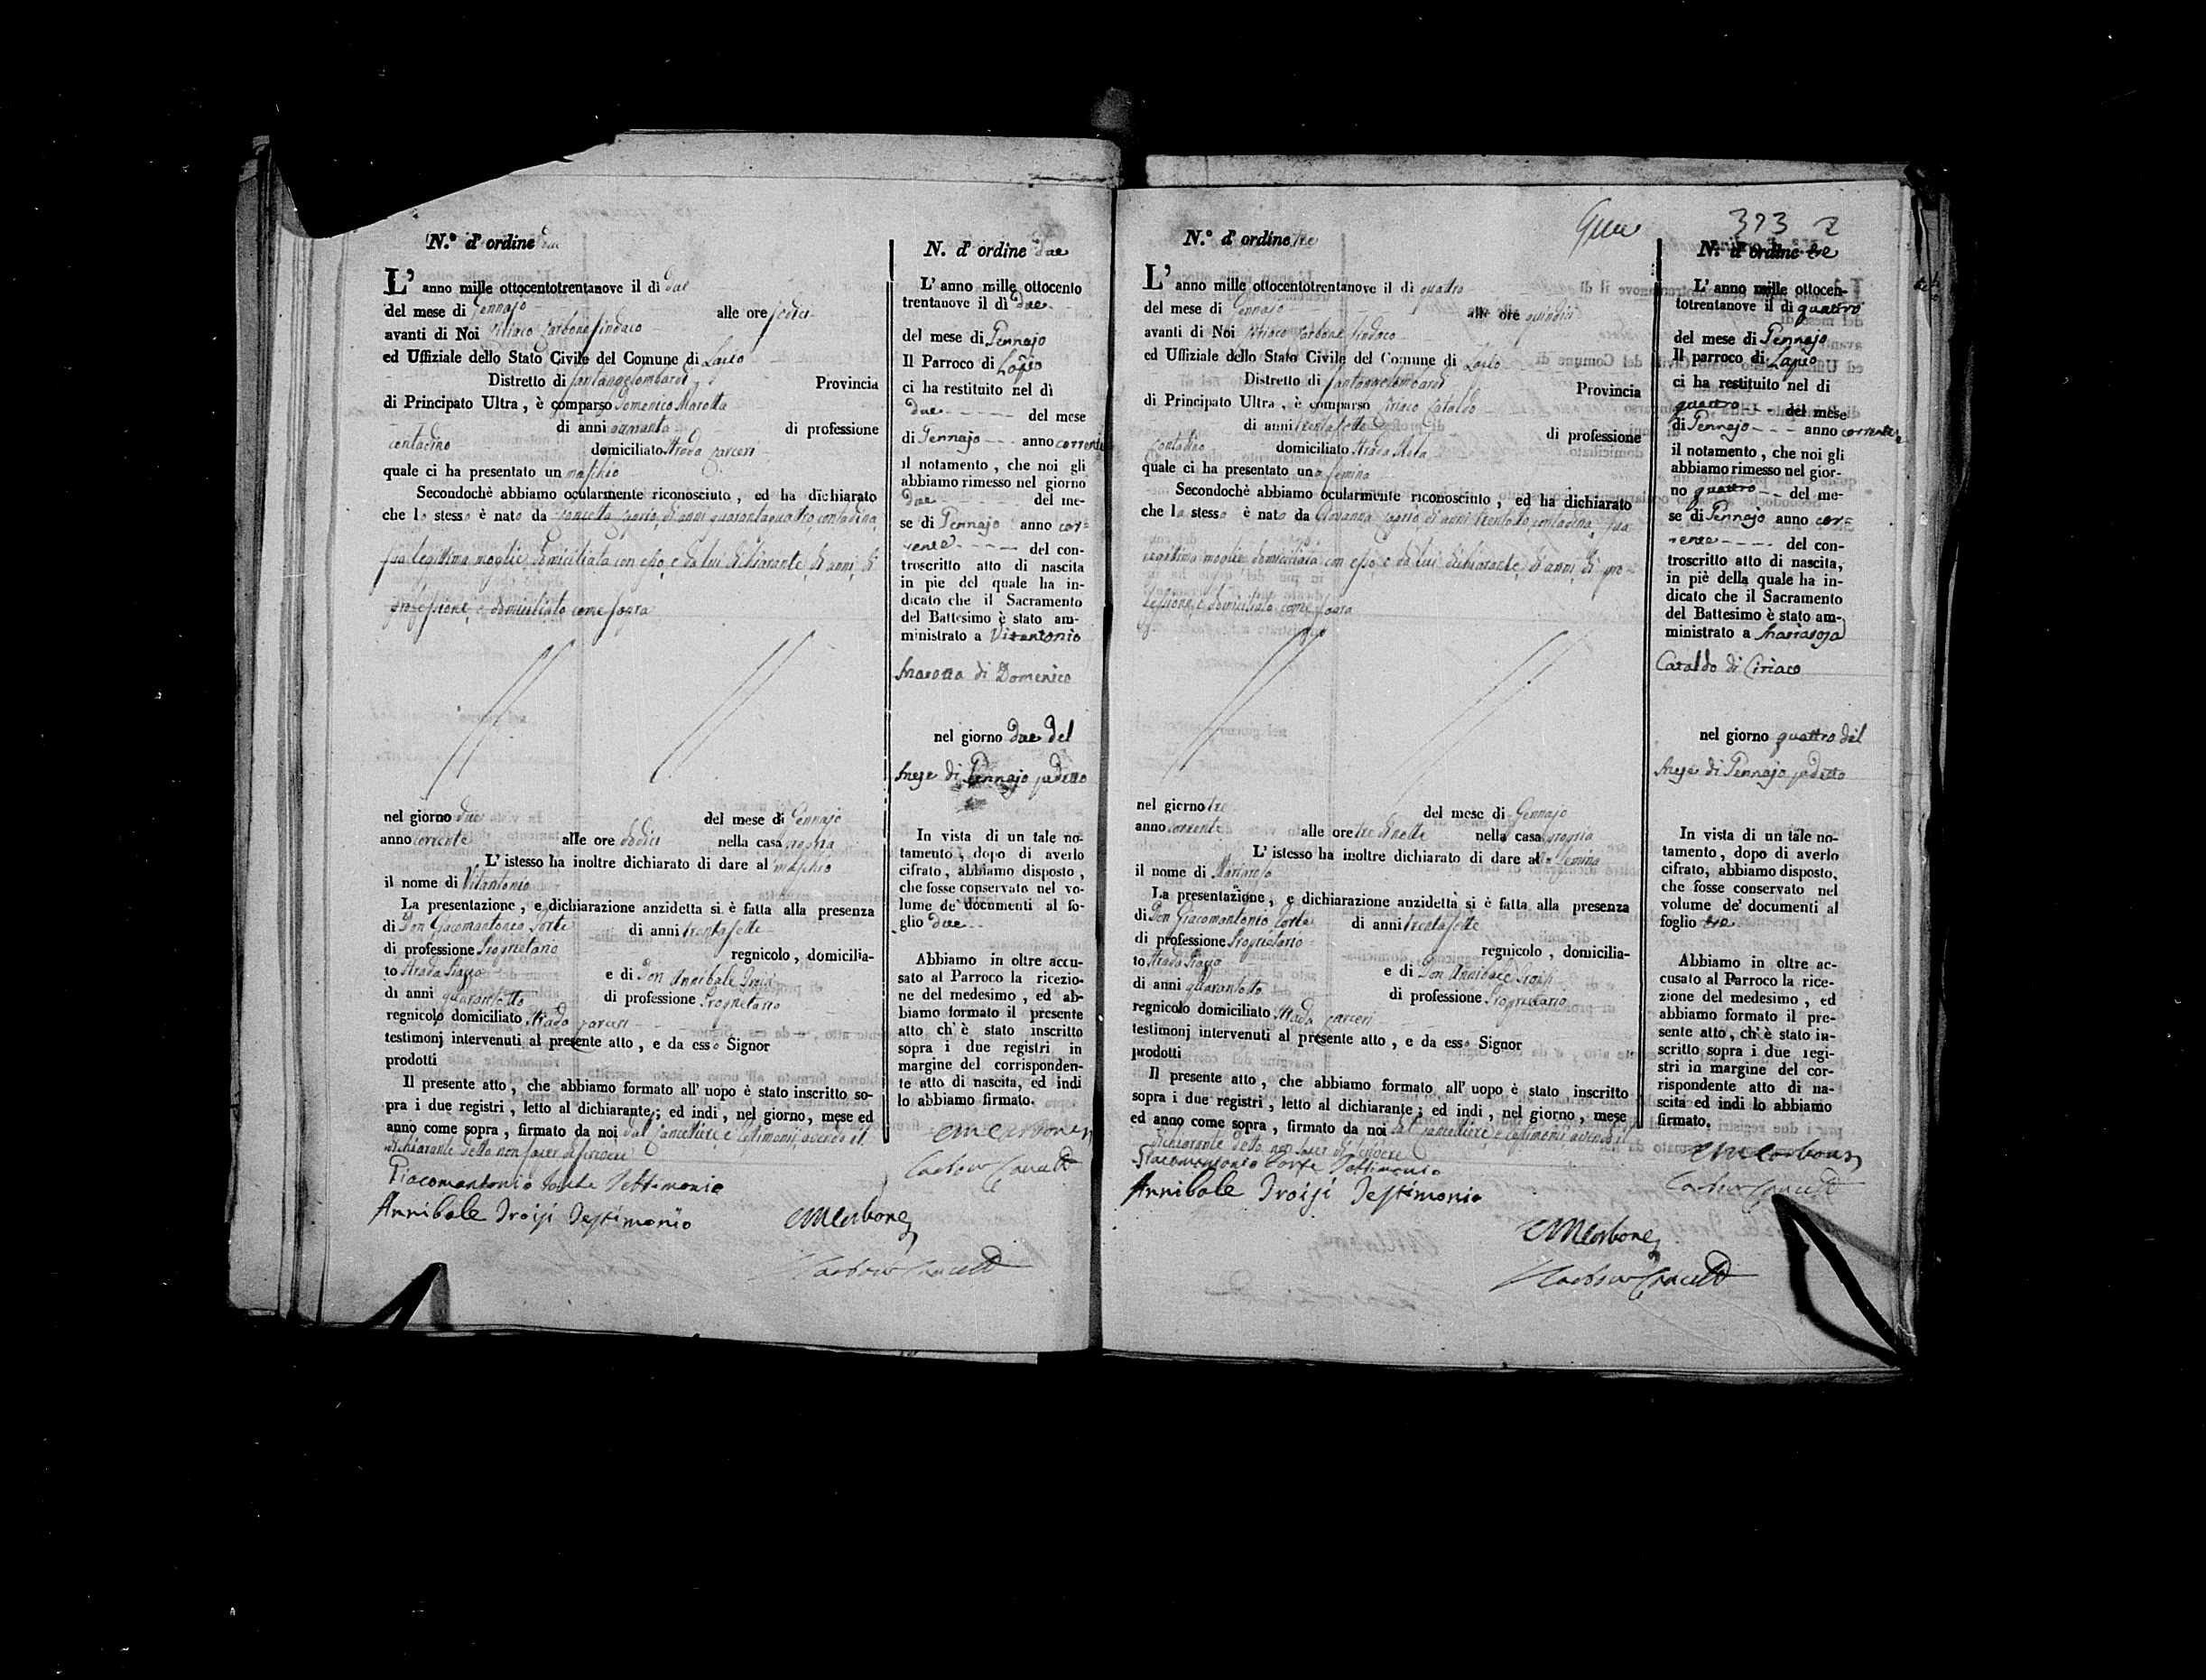 N.º d' ordine due
L' anno mille ottocentotrentanove il dì due
del mese di Gennajo alle ore sedici
avanti di Noi Ciriaco Carbone sindaco
ed Uffiziale dello Stato Civile del Comune di Lapio
Distretto di Santangelombardi Provincia
di Principato Ultra, è comparso Domenico Marotta
di anni di professione
contadino domiciliato Strada carceri
quale ci ha presentato un maschio
Secondochè abbiamo ocularmente riconosciuto, ed ha dichiarato
che lo stesso è nato da Concetta di anni quarantaquattro contadina,
sua legittima moglie domiciliata con esso, e da lui dichiarante, di anni, di
professione, e domiciliato come sopra
nel giorno due del mese di Gennajo
anno corrente alle ore dodici nella casa propria
L' istesso ha inoltre dichiarato di dare al maschio
il nome di Vitantonio
La presentazione, e dichiarazione anzidetta si è fatta alla presenza
di Don Giacomantonio Forte di anni trentasette
di professione Proprietario regnicolo, domicilia-
to Strada Piazza e di Don Annibale Troisi
di anni quarantotto di professione Proprietario
regnicolo domiciliato Strada carceri
testimonj intervenuti al presente atto, e da esso Signor
prodotti
Il presente atto, che abbiamo formato all' uopo è stato inscritto so-
pra i due registri, letto al dichiarante; ed indi, nel giorno, mese ed
anno come sopra, firmato da noi dal cancelliere e testimonj avendo il
dichiarante detto non saper di scrivere
Giacomantonio Forte Testimonio
Annibale Troisi Testimonio
CMCarbone
N. d' ordine due
L' anno mille ottocento
trentanove il dì due
del mese di Gennajo
Il Parroco di Lapio
ci ha restituito nel dì
due del mese
di Gennajo anno corrente
il notamento, che noi gli
abbiamo rimesso nel giorno
due del me-
se di Gennajo anno cor=
rente del con-
troscritto atto di nascita
in pie del quale ha in-
dicato che il Sacramento
del Battesimo è stato am-
ministrato a Vitantonio
Marotta di Domenico
nel giorno due del
Mese di Gennajo pedetto
In vista di un tale no-
tamento, dopo di averlo
cifrato, abbiamo disposto,
che fosse conservato nel vo-
lume de' documenti al fo-
glio due
Abbiamo in oltre accu-
sato al Parroco la ricezio-
ne del medesimo, ed ab-
biamo formato il presente
atto ch' è stato inscritto
sopra i due registri in
margine del corrisponden-
te atto di nascita, ed indi
lo abbiamo firmato.
CMCarbone
373 2
N.º d' ordine tre
L' anno mille ottocentotrentanove il dì quattro
del mese di Gennajo alle ore quindici
avanti di Noi Ciriaco Carbone Sindaco
ed Uffiziale dello Stato Civile del Comune di Lapio
Distretto di Santangelombardi Provincia
di Principato Ultra, è comparso Ciriaco Cataldo
di anni trentasette di professione
Contadino domiciliato Strada
quale ci ha presentato una femina
Secondochè abbiamo ocularmente riconosciuto, ed ha dichiarato
che la stessa è nata da Giovanna di anni trentotto contadina, sua
legittima moglie domiciliata con esso e da lui dichiarante, di anni, di pro=
fessione, e domiciliato come sopra
nel giorno tre del mese di Gennajo
anno corrente alle ore tre di notte nella casa propria
L' istesso ha inoltre dichiarato di dare alla Femina
il nome di Mariarosa
La presentazione, e dichiarazione anzidetta si è fatta alla presenza
di Don Giacomantonio Forte di anni trentasette
di professione Proprietario regnicolo, domicilia-
to Strada Piazza e di Don Annibale Troisi
di anni quarantotto di professione Proprietario
regnicolo domiciliato Strada carceri
testimonj intervenuti al presente atto, e da esso Signor
prodotti
Il presente atto, che abbiamo formato all' uopo è stato inscritto
sopra i due registri, letto al dichiarante; ed indi, nel giorno, mese
ed anno come sopra, firmato da noi dal cancelliere e testimonj avendo il
dichiarante detto non saper di scrivere
Giacomantonio Forte Testimonio
Annibale Troisi Testimonio
CMCarbone
N. d' ordine tre
L' anno mille ottocen-
totrentanove il di quattro
del mese di Gennajo
Il parroco di Lapio
ci ha restituito nel di
quattro del mese
di Gennajo anno corrente
il notamento, che noi gli
abbiamo rimesso nel gior-
no quattro del me-
se di Gennajo anno cor=
rente del con-
troscritto atto di nascita,
in piè della quale ha in-
dicato che il Sacramento
del Battesimo è stato am-
ministrato a Mariarosa
Cataldo di Ciriaco
nel giorno quattro del
Mese di Gennajo pedetto
In vista di un tale no-
tamento, dopo di averlo
cifrato, abbiamo disposto,
che fosse conservato nel
volume de' documenti al
foglio tre
Abbiamo in oltre ac-
cusato al Parroco la rice-
zione del medesimo, ed
abbiamo formato il pre-
sente atto, ch' è stato in-
scritto sopra i due regi-
stri in margine del cor-
rispondente atto di na-
scita ed indi lo abbiamo
firmato.
CMCarbone